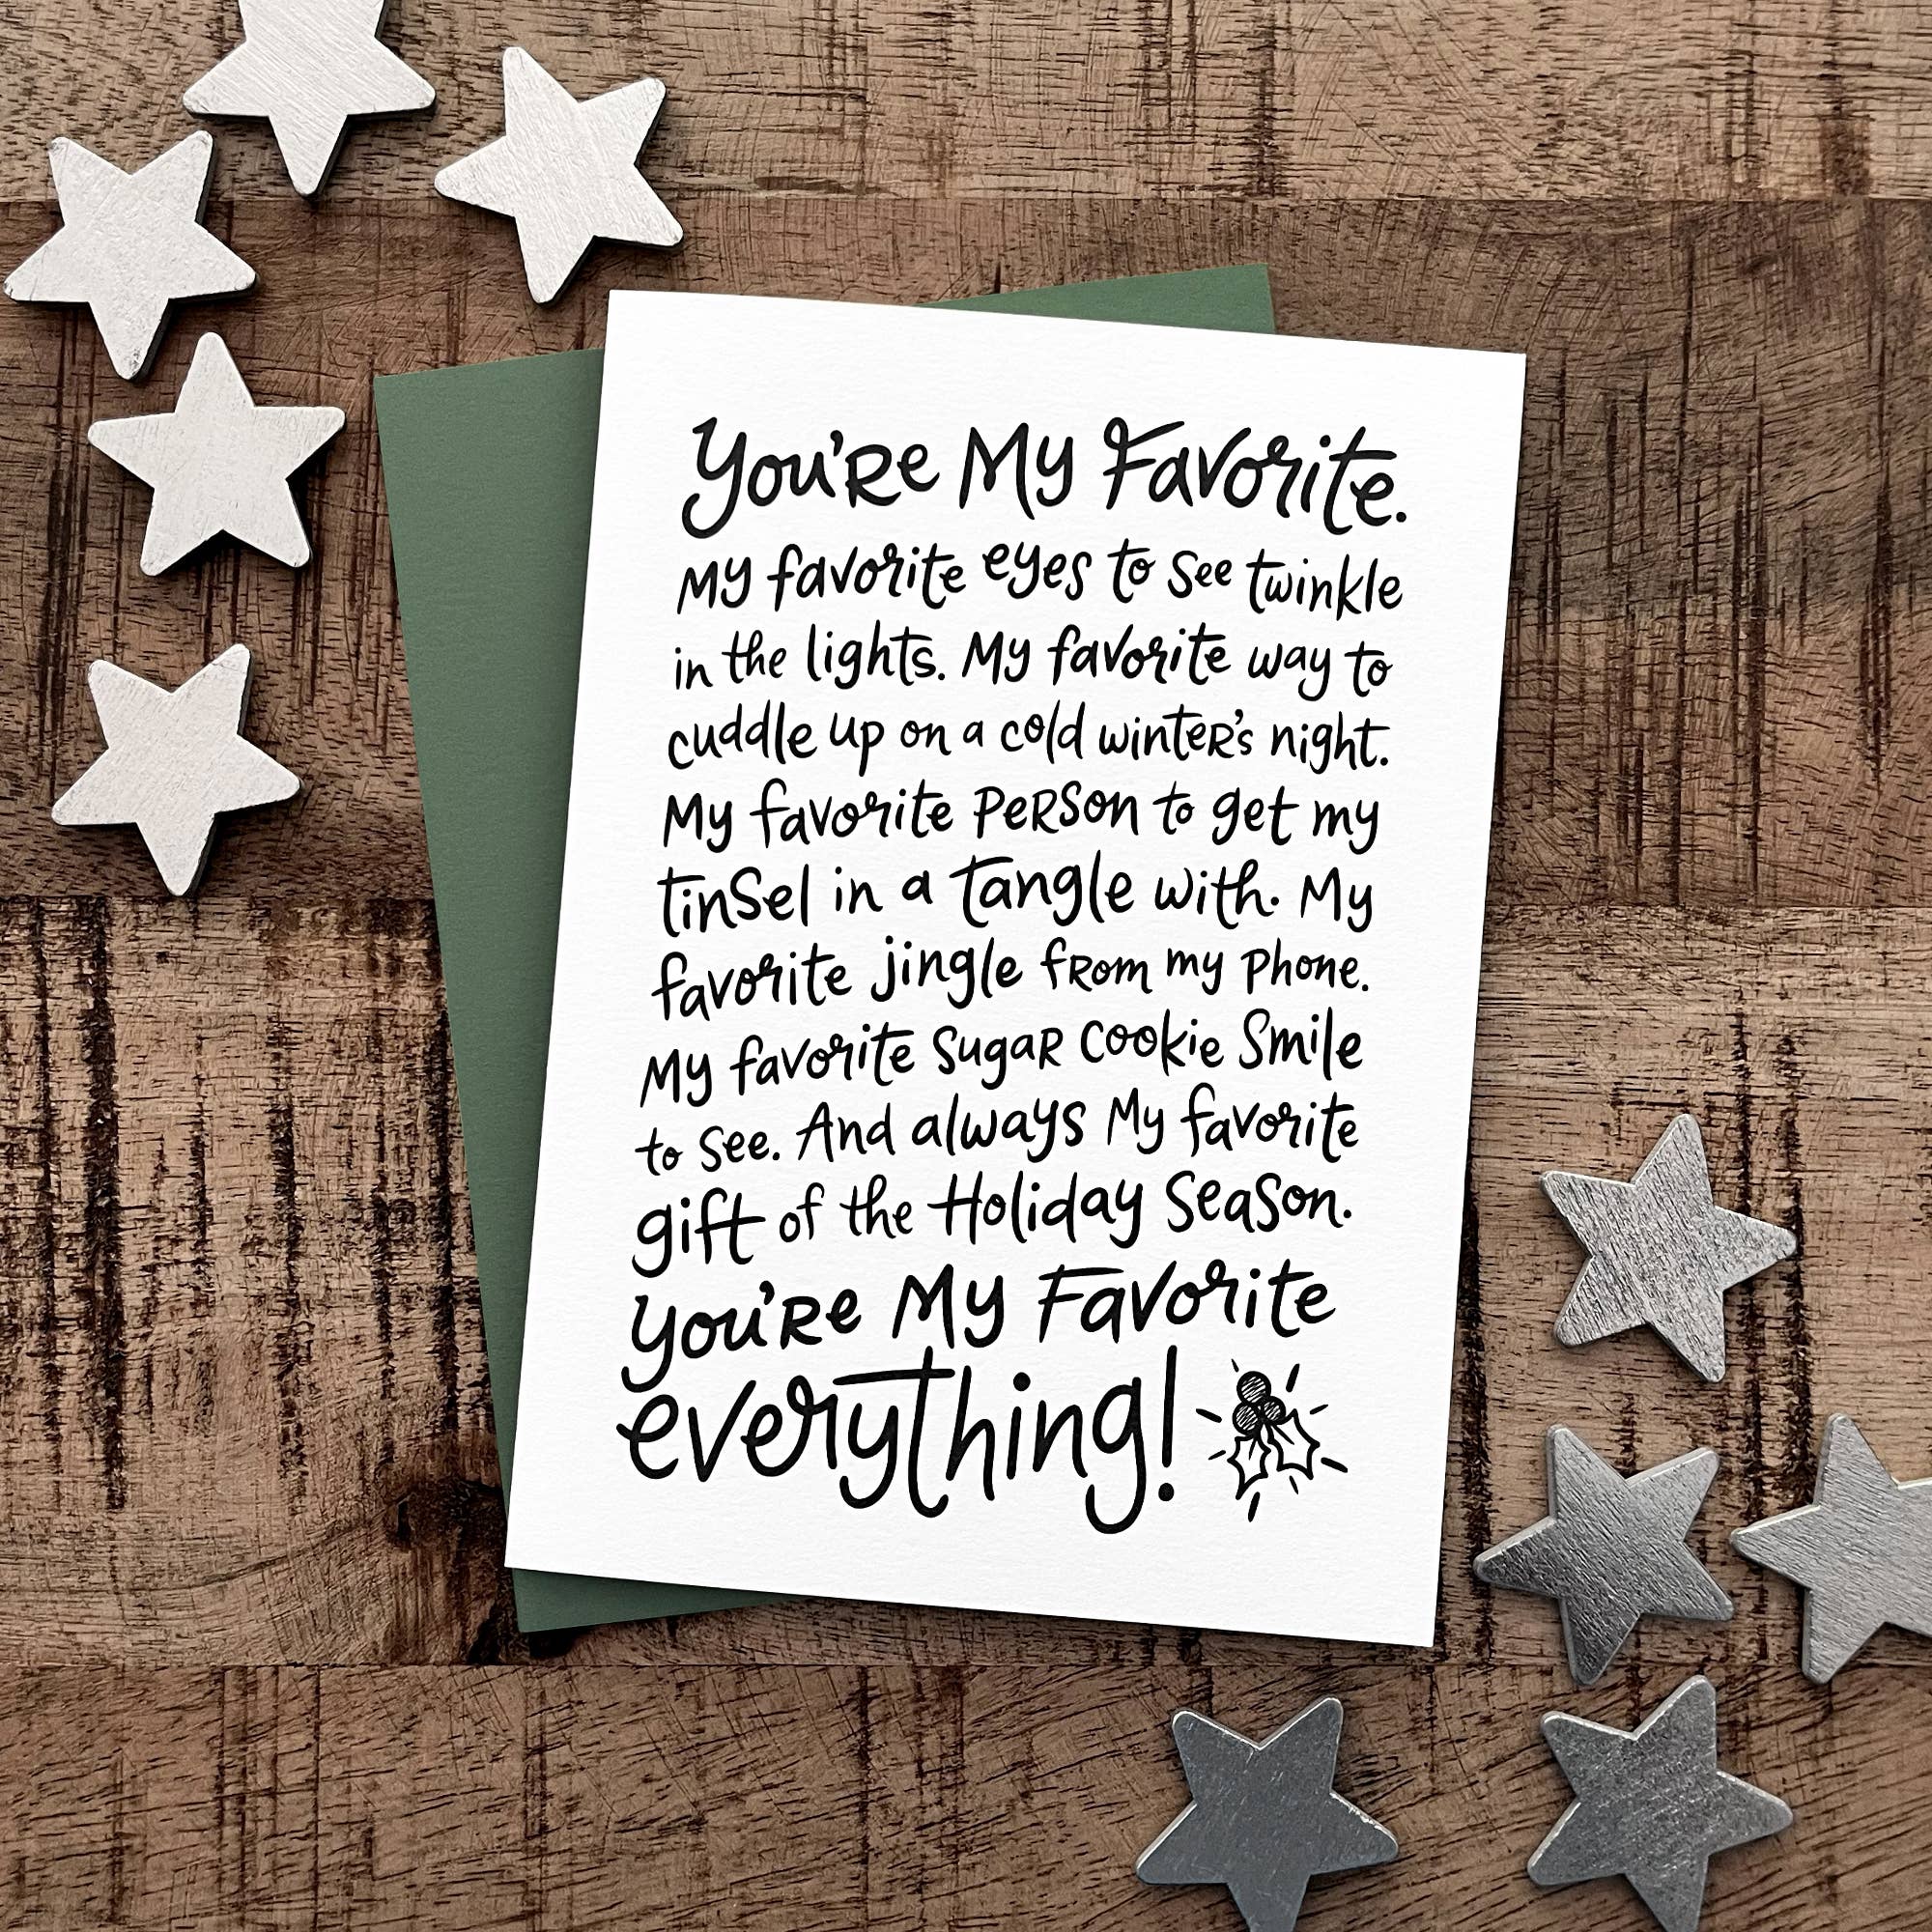 You're My Favorite.
My favorite eyes to see twinkle
in the lights. My favorite way to
cuddle up on a cold winter's night.
My favorite person to get my
tinsel in a tangle with. My
favorite jingle from my phone.
My favorite sugar cookie smile
to see. And always My favorite
gift of the Holiday Season.
You're My Favorite
everything!